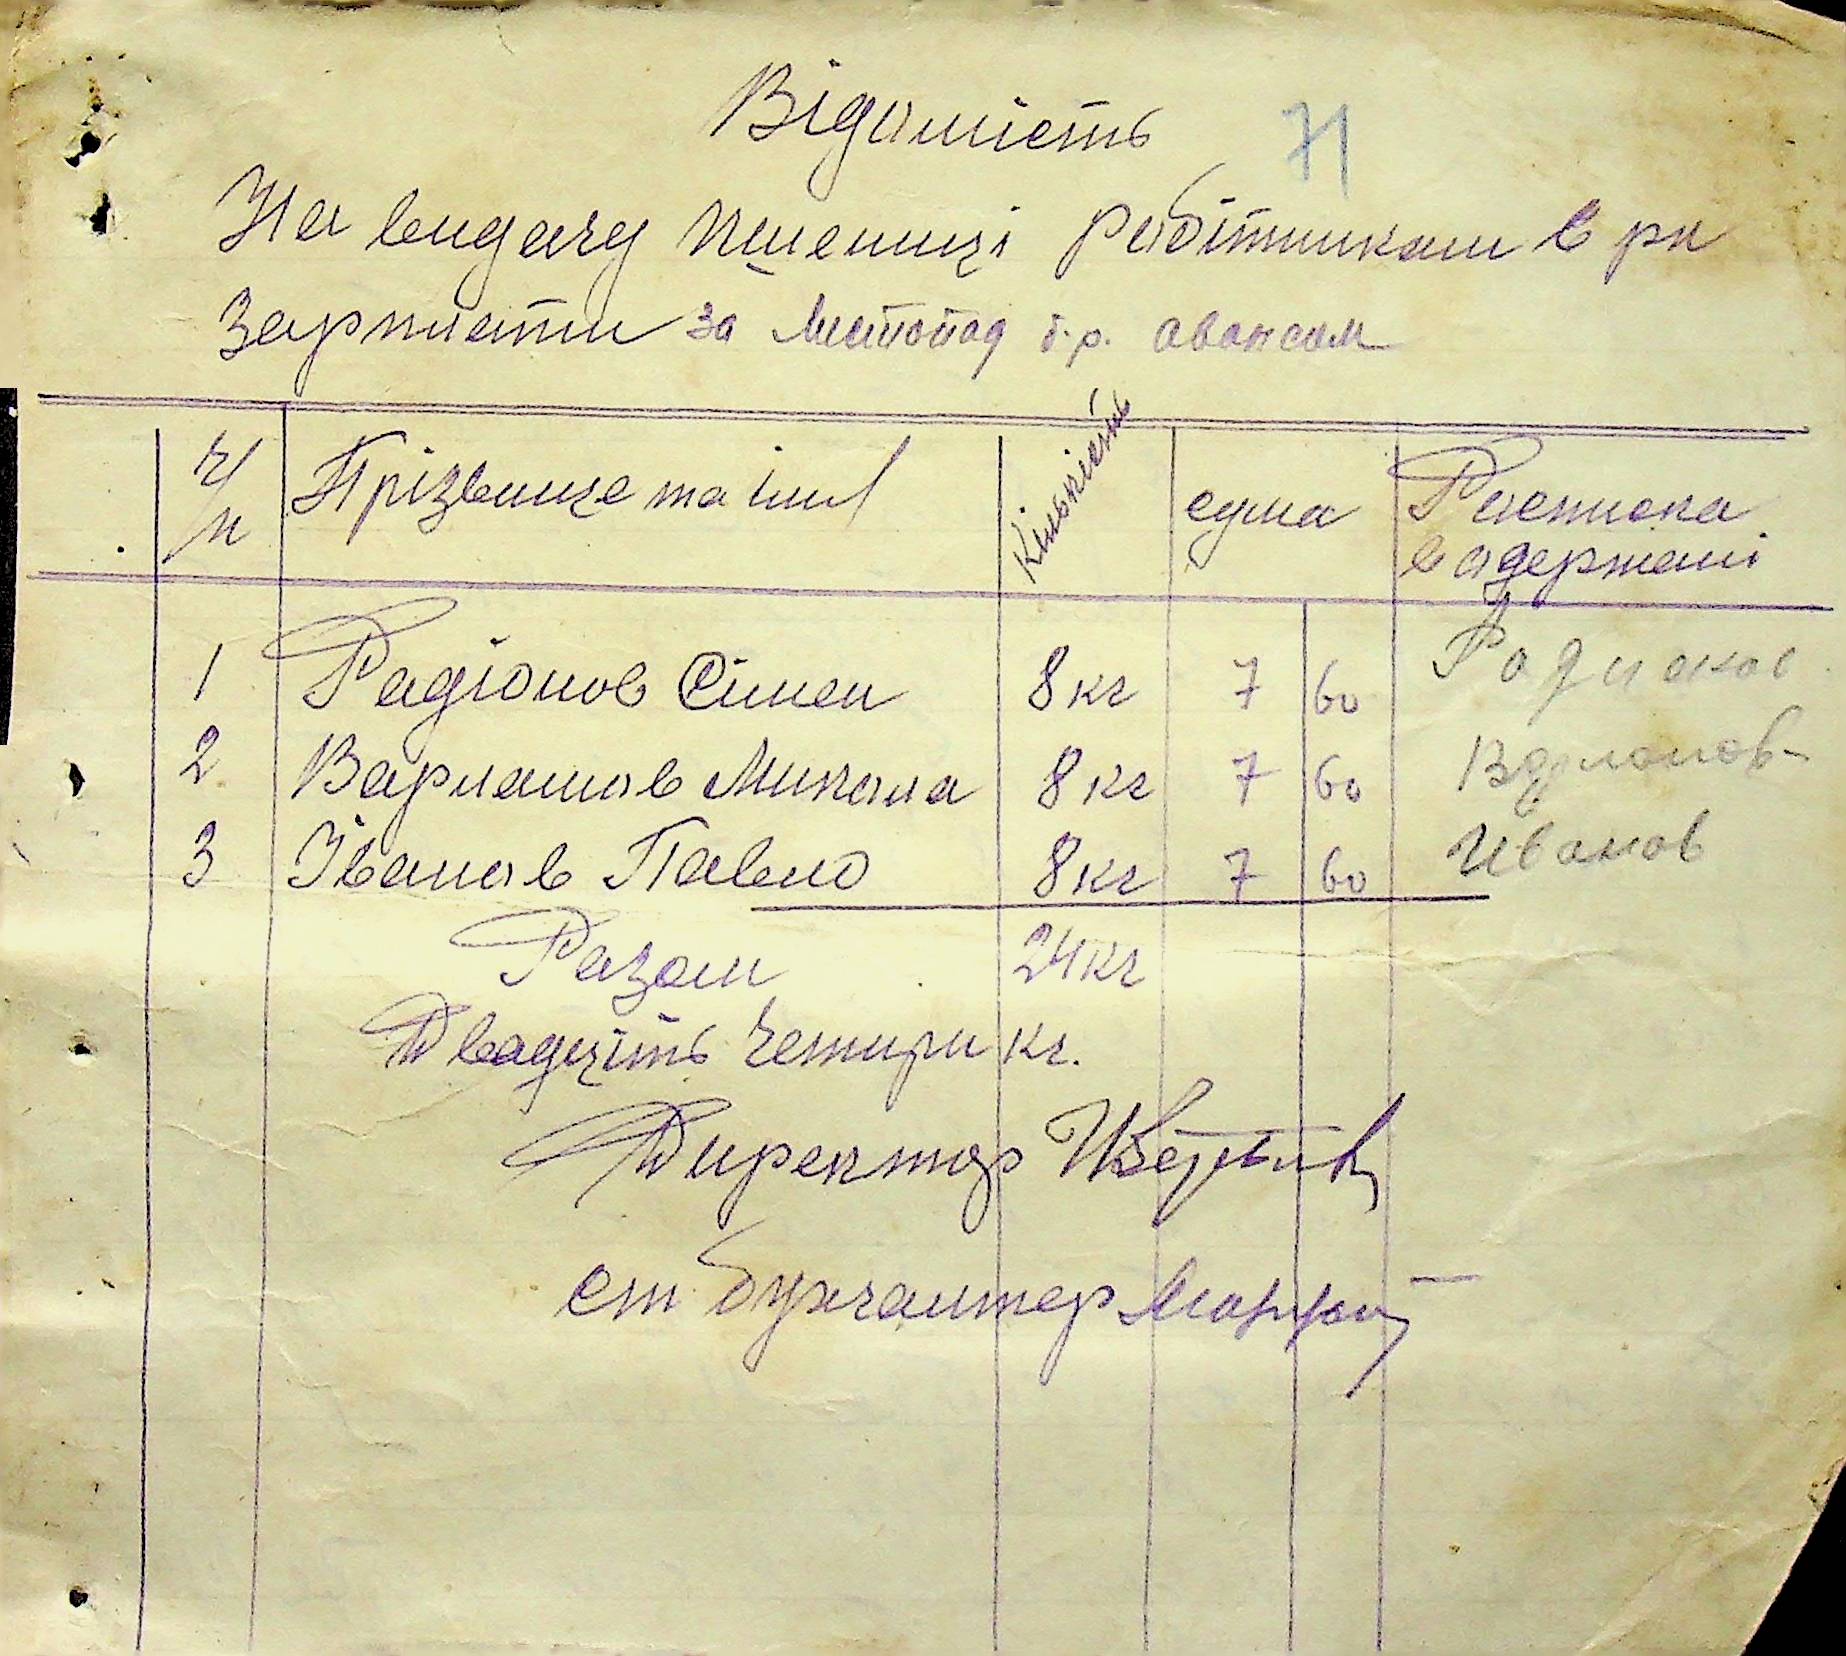 Відамість
71
На видачу пшениці работникам в рн
Зарплати за листопад т.р. авансом
ч/п Прізвище та імя Кількість сума Росписка
в одержані
1 Радіонов Сімен 8 кг 7 60 Родионов
2 Варламов Микола 8 кг 7 60 Варламов
3 Іванов Павло 8 кг 7 60 Иванов
Разом 24 кг
Двадціть четири кг.
Директор
ст бухгалтер